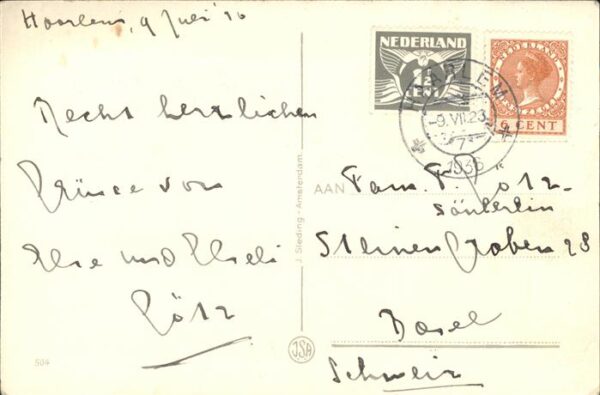 Haarlem, 9 Juli '36
Recht herzlichen
Grüsse von
Else und Elseli
Götz
504
J. Sleding - Amsterdam.
JSA
NEDERLAND
1½
CENT
NEDERLAND
6 CENT
HAARLEM
-9.VII.23
7
1936
AAN
Fam. F. Götz-
Steinengraben 28
Basel
Schweiz